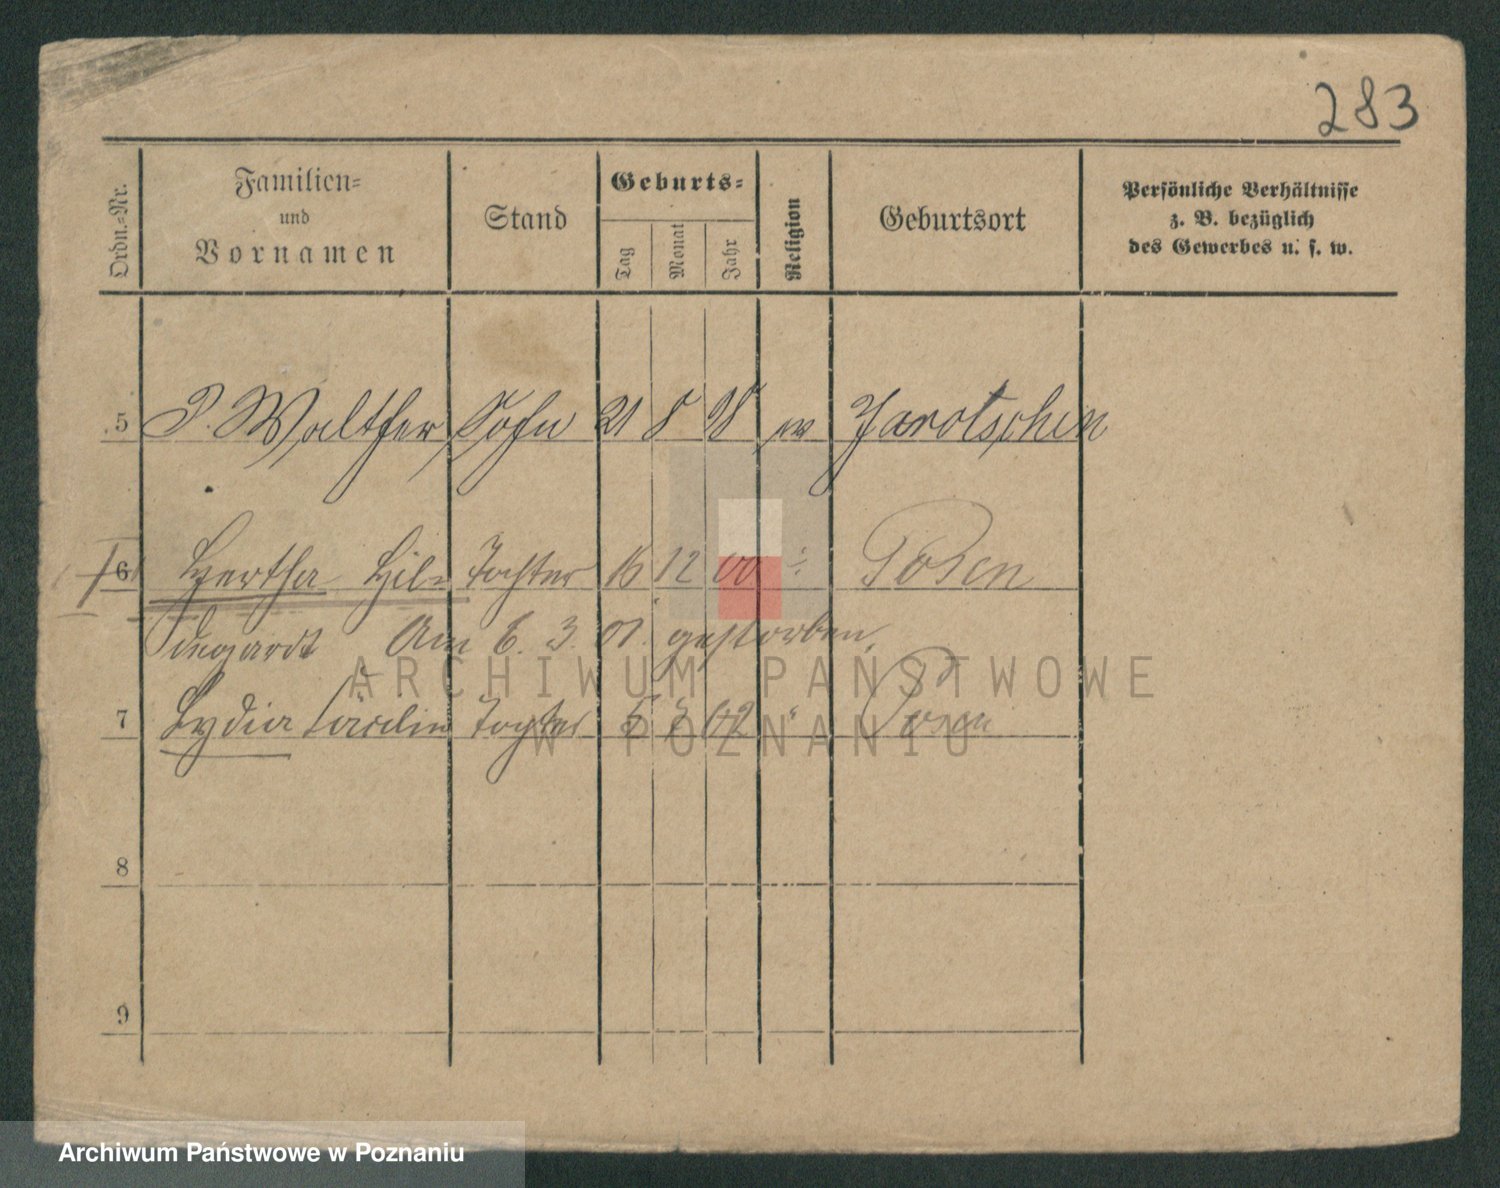 283
Ordn.=Nr.
Familien=
und
Vornamen
Stand
Geburts=
Tag
Monat
Jahr
Religion
Geburtsort
Persönliche Verhältnisse
z. B. bezüglich
des Gewerbes u. s. w.
5 Walther Sohn 21 8 98 Jarotschin
6 Hertha Hil= Tochter 16 12 00 Posen
degardt Am 6. 3. 01. gestorben.
7 Lydia Tochter 02 " Posen
8
9
ARCHIWUM PAŃSTWOWE
W POZNANIU
Archiwum Państwowe w Poznaniu